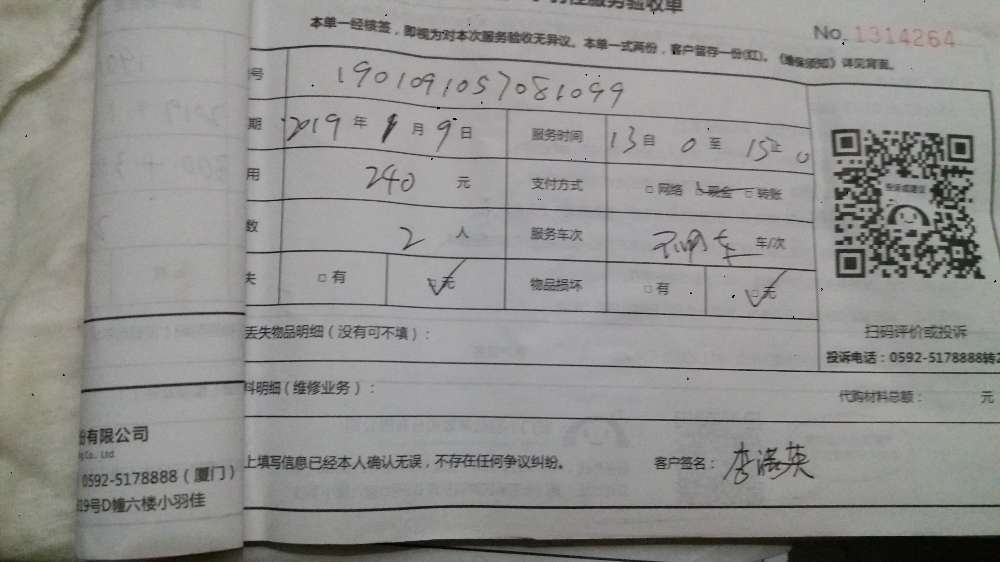 服务验收单
本单一经核签，即视为对本次服务验收无异议。本单一式两份，客户留存一份(红)。《维保须知》详见背面。
No. 1314264
号 1901091057081099
期 2019 年 1 月 9 日 服务时间 13 自 0 至 15 止 0
用 240 元 支付方式 □ 网络 □ 现金 □ 转账
投诉或建议
数 2 人 服务车次 车 车/次
失 □ 有 □ 无 物品损坏 □ 有 □ 无
扫码评价或投诉
丢失物品明细（没有可不填）：
投诉电话：0592-5178888转2
料明细（维修业务）：
代购材料总额： 元
份有限公司
Co., Ltd
上填写信息已经本人确认无误，不存在任何争议纠纷。 客户签名：
0592-5178888（厦门）
19号D幢六楼小羽佳